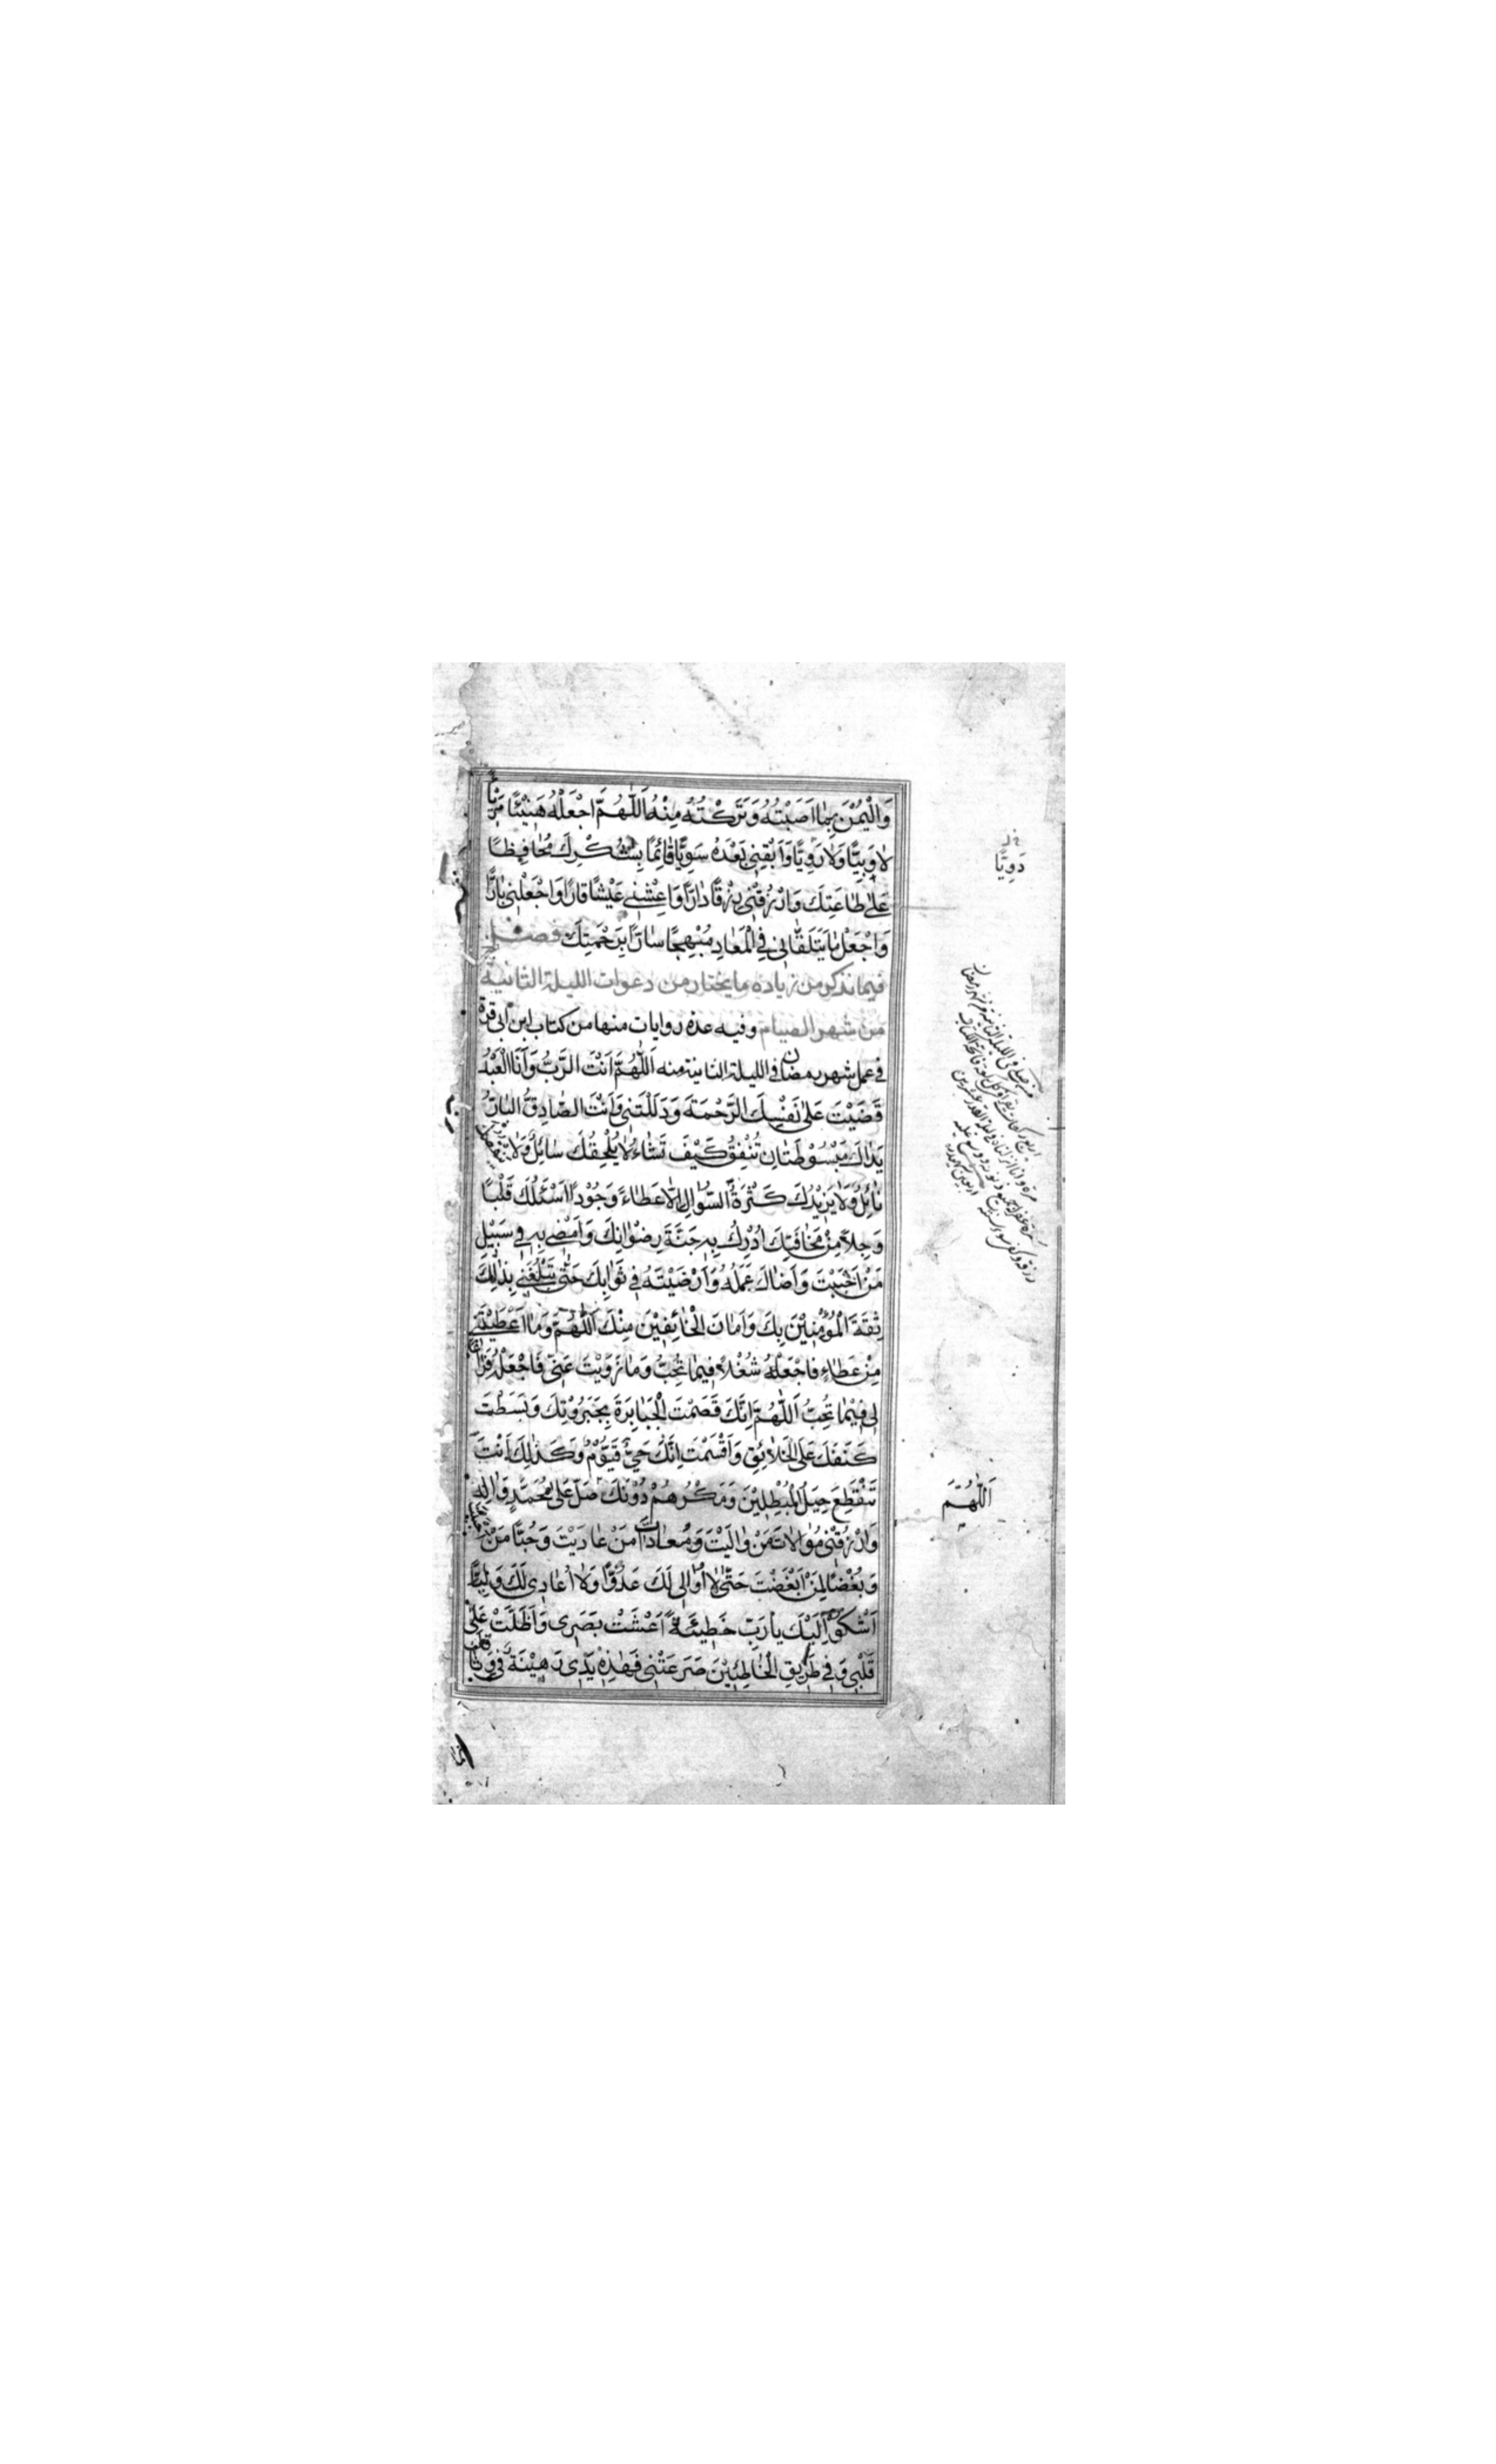 وَالْيُمْنَ بِمٰا اَصَبْتُهُ وَتَرَكْتُهُ مِنْهُ اَللّٰهُمَّ اجْعَلْهُ هَنِيْئًا مَرِيْئًا
لٰا وَبِيًّا وَلٰا رَوِيًّا وَاَبْقِنِى بَعْدَهُ سَوِيًّا قٰائِمًا بِشُكْرِكَ مُحٰافِظًا
عَلٰى طٰاعَتِكَ وَارْزُقْنِى رِزْقًا دٰارًّا وَاَعِشْنِى عَيْشًا قٰارًّا وَاجْعَلْنِى بٰارًّا
وَاجْعَلْ مٰا يَتَلَقّٰانِى فِى الْمَعٰادِ مُبْهِجًا سٰارًّا بِرَحْمَتِكَ فصل
فيما نذكر من زيادة ما يختار من دعوات الليلة الثانية
من شهر الصيام وفيه عدة روايات منها من كتاب ابن ابى قرة
فى عمل شهر رمضان فى الليلة الثانية منه اَللّٰهُمَّ اَنْتَ الرَّبُّ وَاَنَا الْعَبْدُ
قَضَيْتَ عَلٰى نَفْسِكَ الرَّحْمَةَ وَدَلَلْتَنِى وَاَنْتَ الصّٰادِقُ البٰارُّ
يَدٰاكَ مَبْسُوْطَتٰانِ تُنْفِقُ كَيْفَ تَشٰاءُ لٰا يُلْحِفُكَ سٰائِلٌ وَلٰا يَنْقُصُكَ
نٰائِلٌ وَلٰا يَزِيْدُكَ كَثْرَةُ السُّؤٰالِ اِلّٰا عَطٰاءً وَجُوْدًا اَسْئَلُكَ قَلْبًا
وَجِلاً مِنْ مَخٰافَتِكَ اُدْرِكُ بِهِ جَنَّةَ رِضْوٰانِكَ وَاَمْضِى بِهِ فِى سَبِيْلِ
مَنْ اَحْبَبْتَ وَاَرْضٰاكَ عَمَلُهُ وَاَرْضَيْتَهُ فِى ثَوٰابِكَ حَتّٰى تُبَلِّغَنِى بِذٰلِكَ
ثِقَةَ الْمُؤْمِنِيْنَ بِكَ وَاَمٰانَ الْخٰائِفِيْنَ مِنْكَ اَللّٰهُمَّ وَمٰا اَعْطَيْتَنِى
مِنْ عَطٰاءٍ فَاجْعَلْهُ شُغْلاً فِيمٰا تُحِبُّ وَمٰا زَوَيْتَ عَنِّى فَاجْعَلْهُ فَرٰاغًا
لِى فِيْمٰا تُحِبُّ اَللّٰهُمَّ اِنَّكَ قَصَمْتَ الْجَبٰابِرَةَ بِجَبَرُوْتِكَ وَبَسَطْتَ
كَنَفَكَ عَلَى الْخَلٰائِقِ وَاَقْسَمْتَ اِنَّكَ حَىٌّ قَيُّوْمٌ وَكَذٰلِكَ اَنْتَ
تَنْقَطِعُ حِيَلُ الْمُبْطِلِيْنَ وَمَكْرُهُمْ دُوْنَكَ صَلِّ عَلٰى مُحَمَّدٍ وَاٰلِهِ
وَارْزُقْنِى مُوٰالٰاتَ مَنْ وٰالَيْتَ وَمُعٰادٰاتَ مَنْ عٰادَيْتَ وَحُبًّا لِمَنْ اَحْبَبْتَ
وَبُغْضًا لِمَنْ اَبْغَضْتَ حَتّٰى لٰا اُوٰالِى لَكَ عَدُوًّا وَلٰا اُعٰادِىَ لَكَ وَلِيًّا
اَشْكُوْ اِلَيْكَ يٰا رَبِّ خَطِيْئَةً اَعْشَتْ بَصَرِى وَاَظَلَّتْ عَلٰى
قَلْبِى وَفِى طَرِيْقِ الْخٰاطِئِيْنَ صَرَعَتْنِى فَهٰذِهِ يَدِى رَهِيْنَةٌ فِى وَثٰاقِكَ
دَوِيًّا
اَللّٰهُمَّ